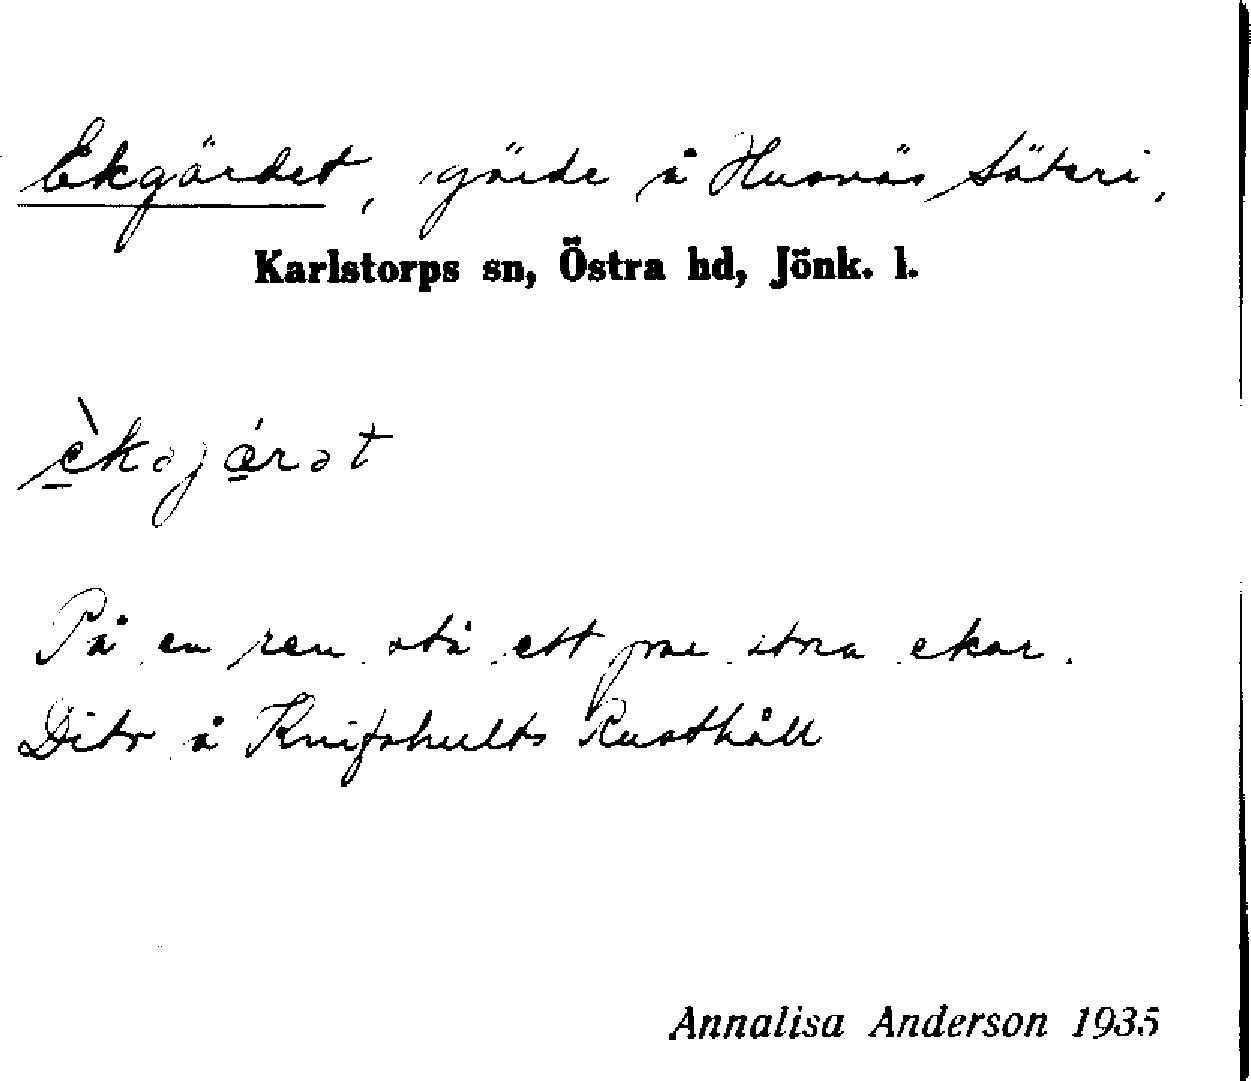 Ekgärdet, gärde å Husnäs Säteri,
Karlstorps sn, Östra hd, Jönk. l.
èkəjǽrət
På en ren stå ett par stora ekar.
Dito å Knifshults Rusthåll
Annalisa Anderson 1935